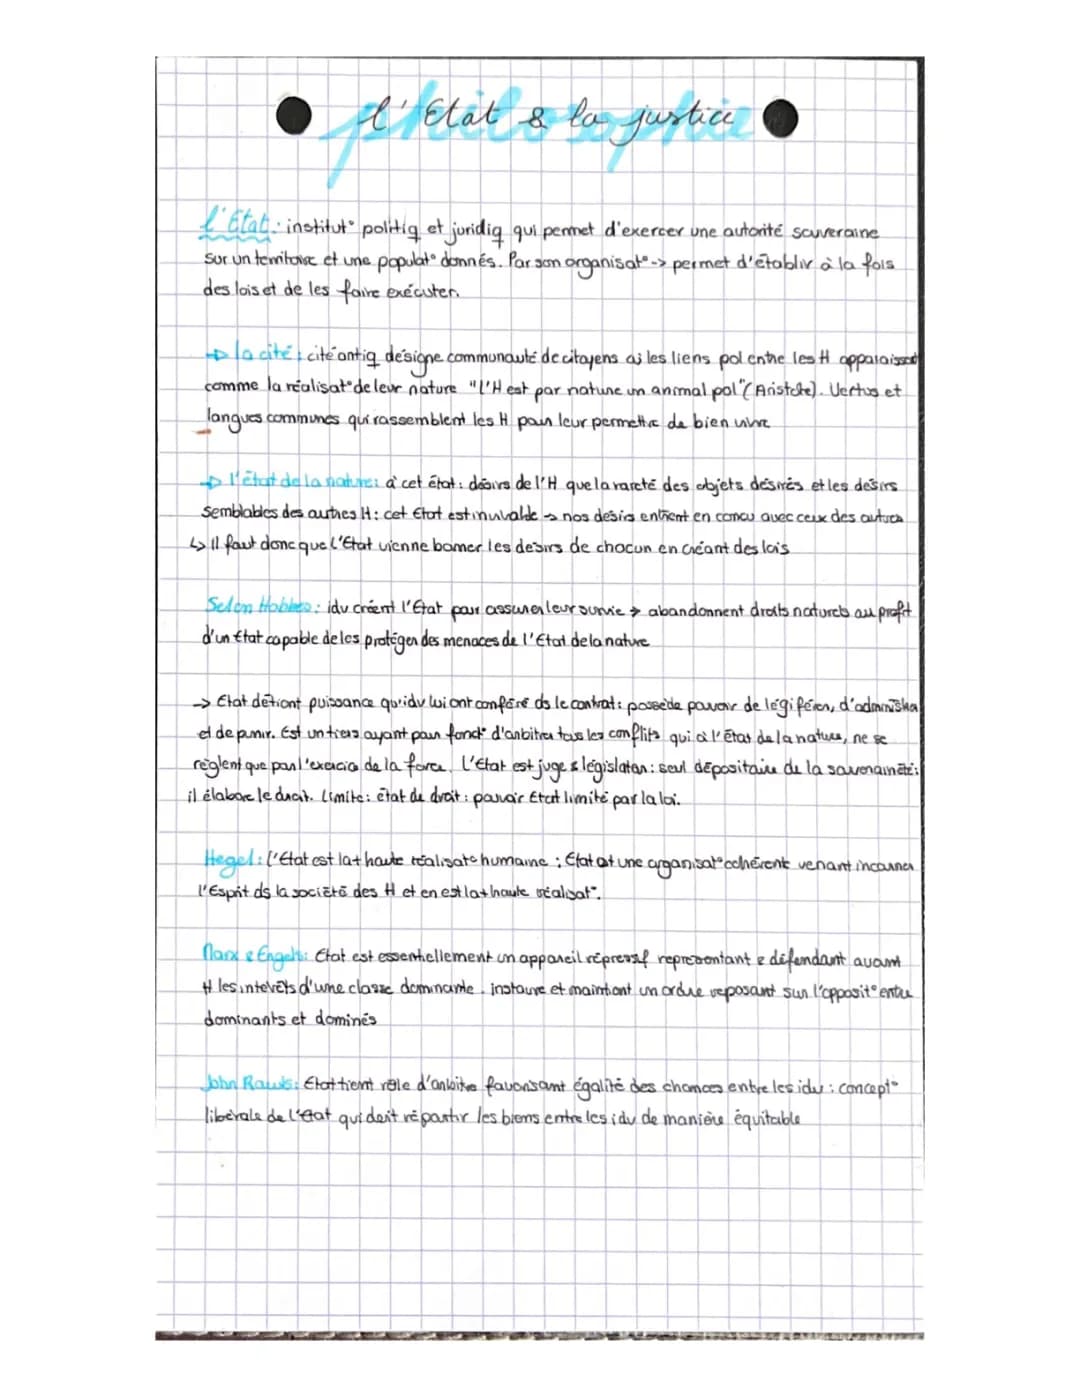 philosophie
l'Etat & la justice
l'Etat : institut° politiq et juridiq qui permet d'exercer une autorité souveraine
sur un territoire et une populat° donnés. Par son organisat° -> permet d'établir à la fois
des lois et de les faire exécuter.
→ la cité : cité antiq désigne communauté de citoyens où les liens pol entre les H apparaissent
comme la réalisat° de leur nature "l'H est par nature un animal pol" (Aristote). Vertus et
langues communes qui rassemblent les H pour leur permettre de bien vivre
→ l'état de la nature : à cet état : désirs de l'H que la rareté des objets désirés et les desirs
semblables des autres H : cet Etat est invivable → nos désirs entrent en concu avec ceux des autres
↳ il faut donc que l'Etat vienne borner les desirs de chacun en créant des lois
Selon Hobbes : idv créent l'Etat pour assurer leur survie → abandonnent droits naturels au profit
d'un Etat capable de les protéger des menaces de l'Etat de la nature
-> Etat détient puissance qu'idv lui ont conféré ds le contrat : possède pouvoir de légiférer, d'administrer
et de punir. Est un tiers ayant pour fonct° d'arbitrer tous les conflits qui à l'état de la nature, ne se
règlent que par l'exercice de la force. L'Etat est juge & législateur : seul dépositaire de la souveraineté :
il élabore le droit. Limite : état de droit : pouvoir Etat limité par la loi.
Hegel : l'Etat est la + haute réalisat° humaine ; Etat est une organisat° cohérent venant incarner
l'Esprit ds la société des H et en est la + haute réalisat°.
Marx & Engels : Etat est essentiellement un appareil répressif représentant & défendant avant
tt les interêts d'une classe dominante. instaure et maintient un ordre reposant sur l'opposit° entre
dominants et dominés
John Rawls : Etat tient rôle d'arbitre favorisant égalité des chances entre les idv : concept°
libérale de l'Etat qui doit répartir les biens entre les idv de manière équitable